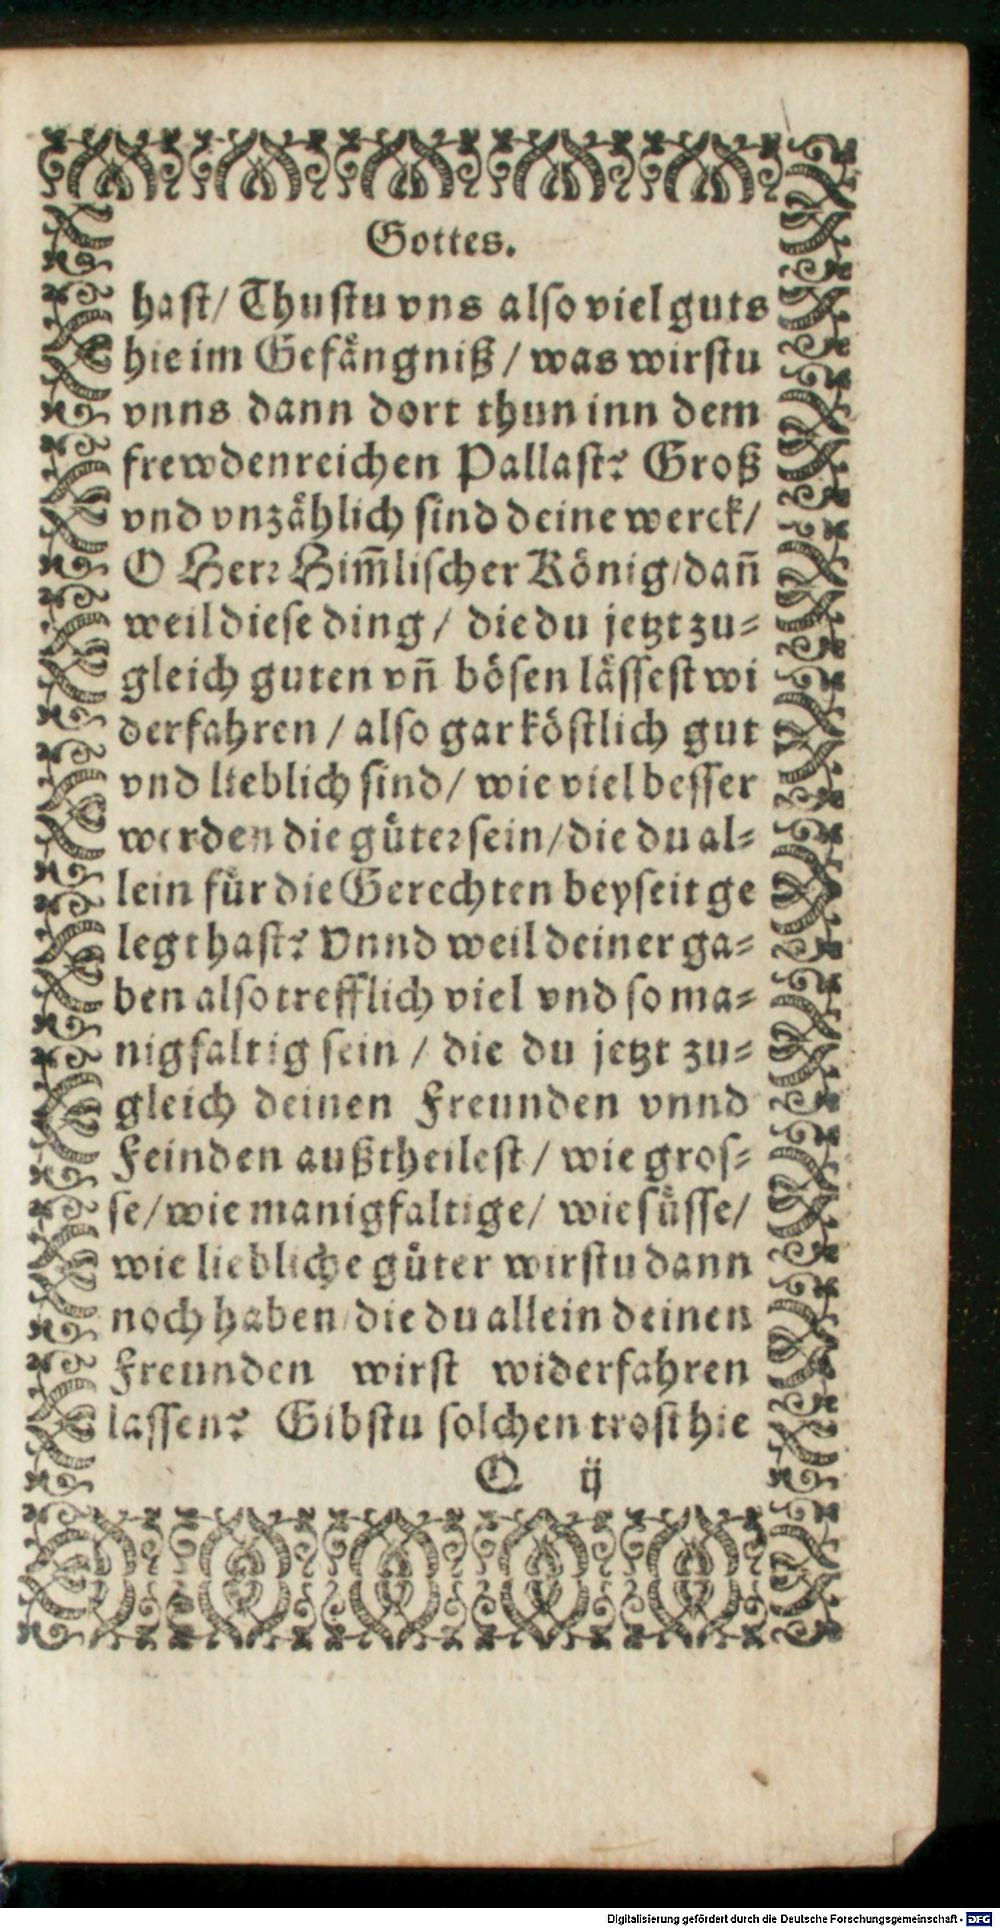 Gottes.
hast/ Thustu vns also viel guts
hie im Gefängniß / was wirstu
vnns dann dort thun inn dem
frewdenreichen Pallast? Groß
vnd vnzählich sind deine werck/
O Herr Him̃lischer König/ dañ
weil diese ding / die du jetzt zu-
gleich guten vñ bösen lässest wi
derfahren / also gar köstlich gut
vnd lieblich sind/ wie viel besser
werden die güter sein/ die du al-
lein für die Gerechten beyseit ge
legt hast? Vnnd weil deiner ga-
ben also trefflich viel vnd so ma-
nigfaltig sein / die du jetzt zu-
gleich deinen Freunden vnnd
Feinden außtheilest / wie gros-
se/ wie manigfaltige/ wie süsse/
wie liebliche güter wirstu dann
noch haben/ die du allein deinen
Freunden wirst widerfahren
lassen? Gibstu solchen trost hie
Q ij
Digitalisierung gefördert durch die Deutsche Forschungsgemeinschaft - DFG